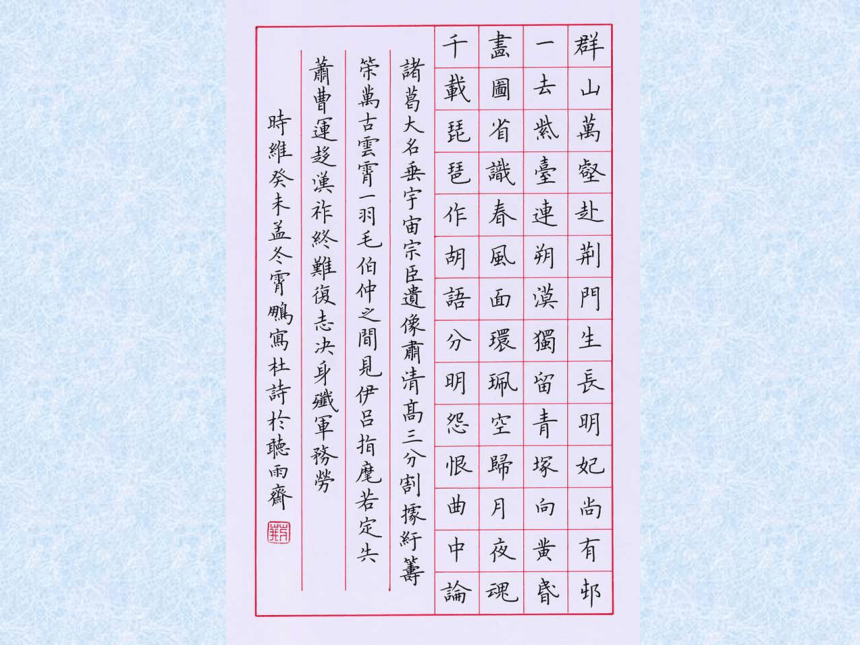 群山萬壑赴荆門生長明妃尚有邨
一去紫臺連朔漠獨留青塚向黄昏
畫圖省識春風面環珮空歸月夜魂
千載琵琶作胡語分明怨恨曲中論
諸葛大名垂宇宙宗臣遺像肅清高三分割據紆籌
筞萬古雲霄一羽毛伯仲之間見伊吕指麾若定失
蕭曹運移漢祚終難復志决身殲軍務勞
時維癸未孟冬霄鵬寫杜詩於聽雨齋